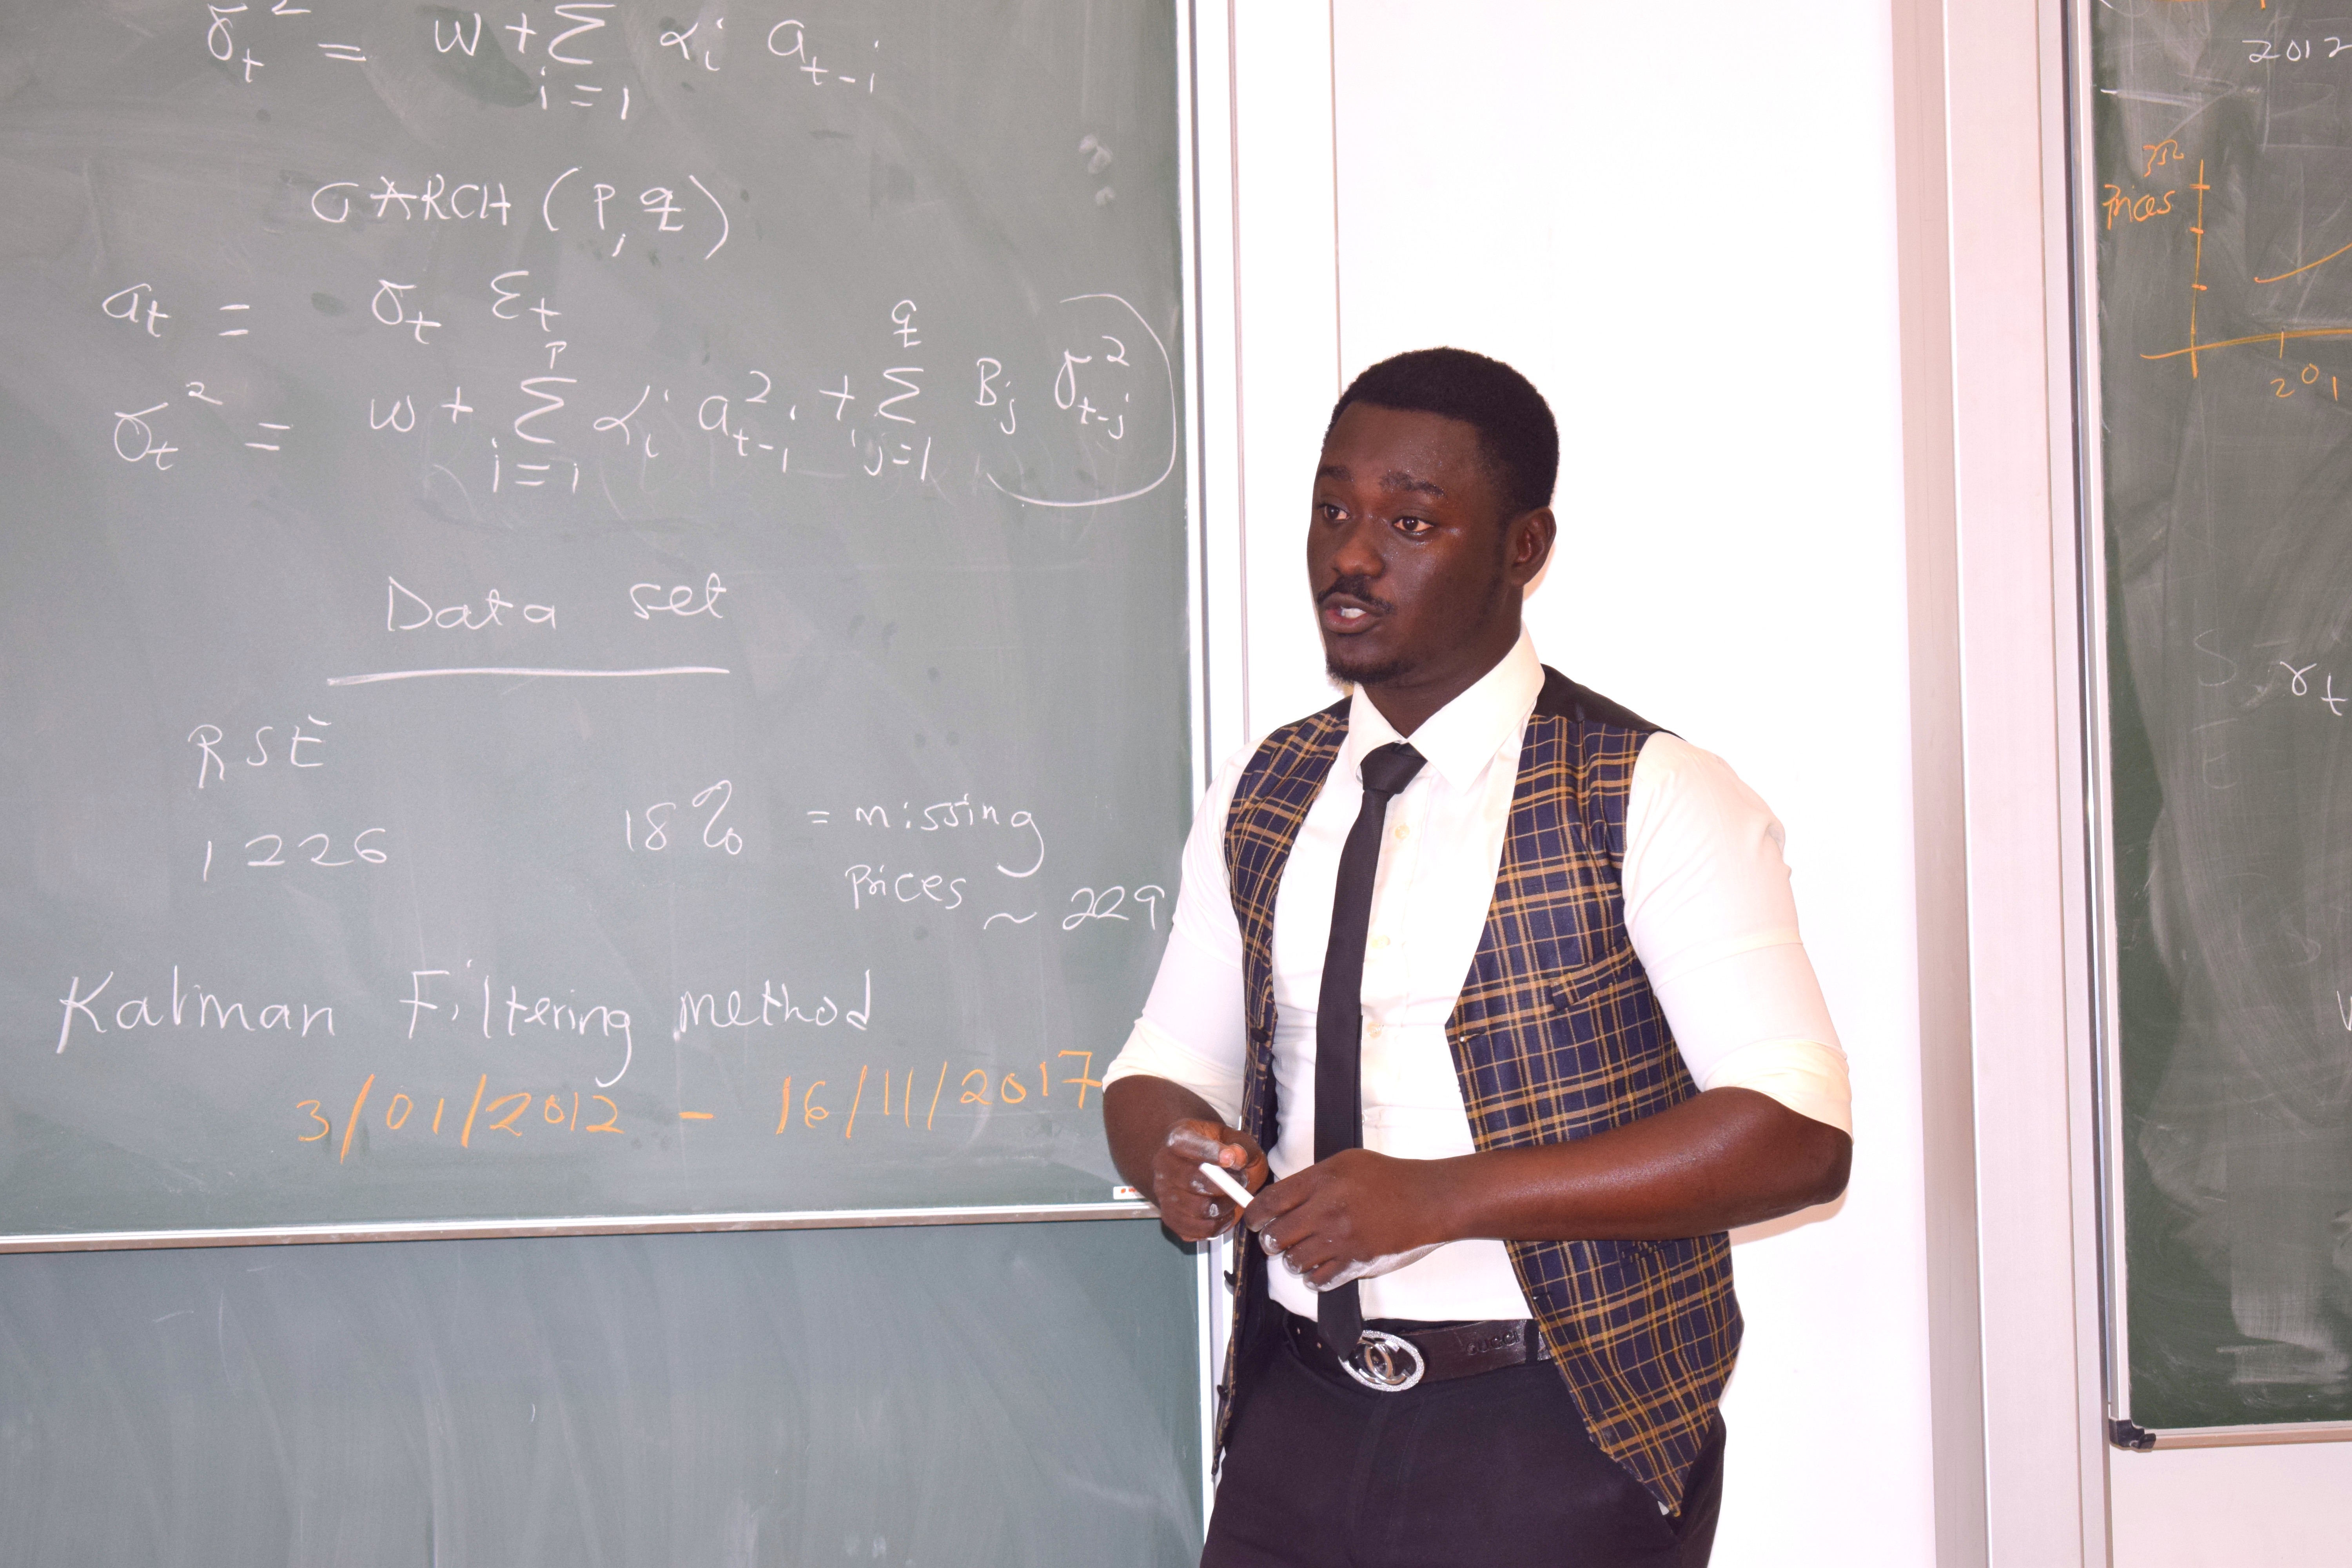 σₜ² = w + Σ αᵢ aₜ₋ᵢ
i=1
GARCH (P, q)
aₜ = σₜ εₜ
P q
σₜ² = w + Σ αᵢ a²ₜ₋ᵢ + Σ Bⱼ σ²ₜ₋ⱼ
i=1 j=1
Data set
RSE
1226 18% = missing
Prices ~ 229
Kalman Filtering method
3/01/2012 - 16/11/2017
2012
Prices
201
rₜ
GUCCI